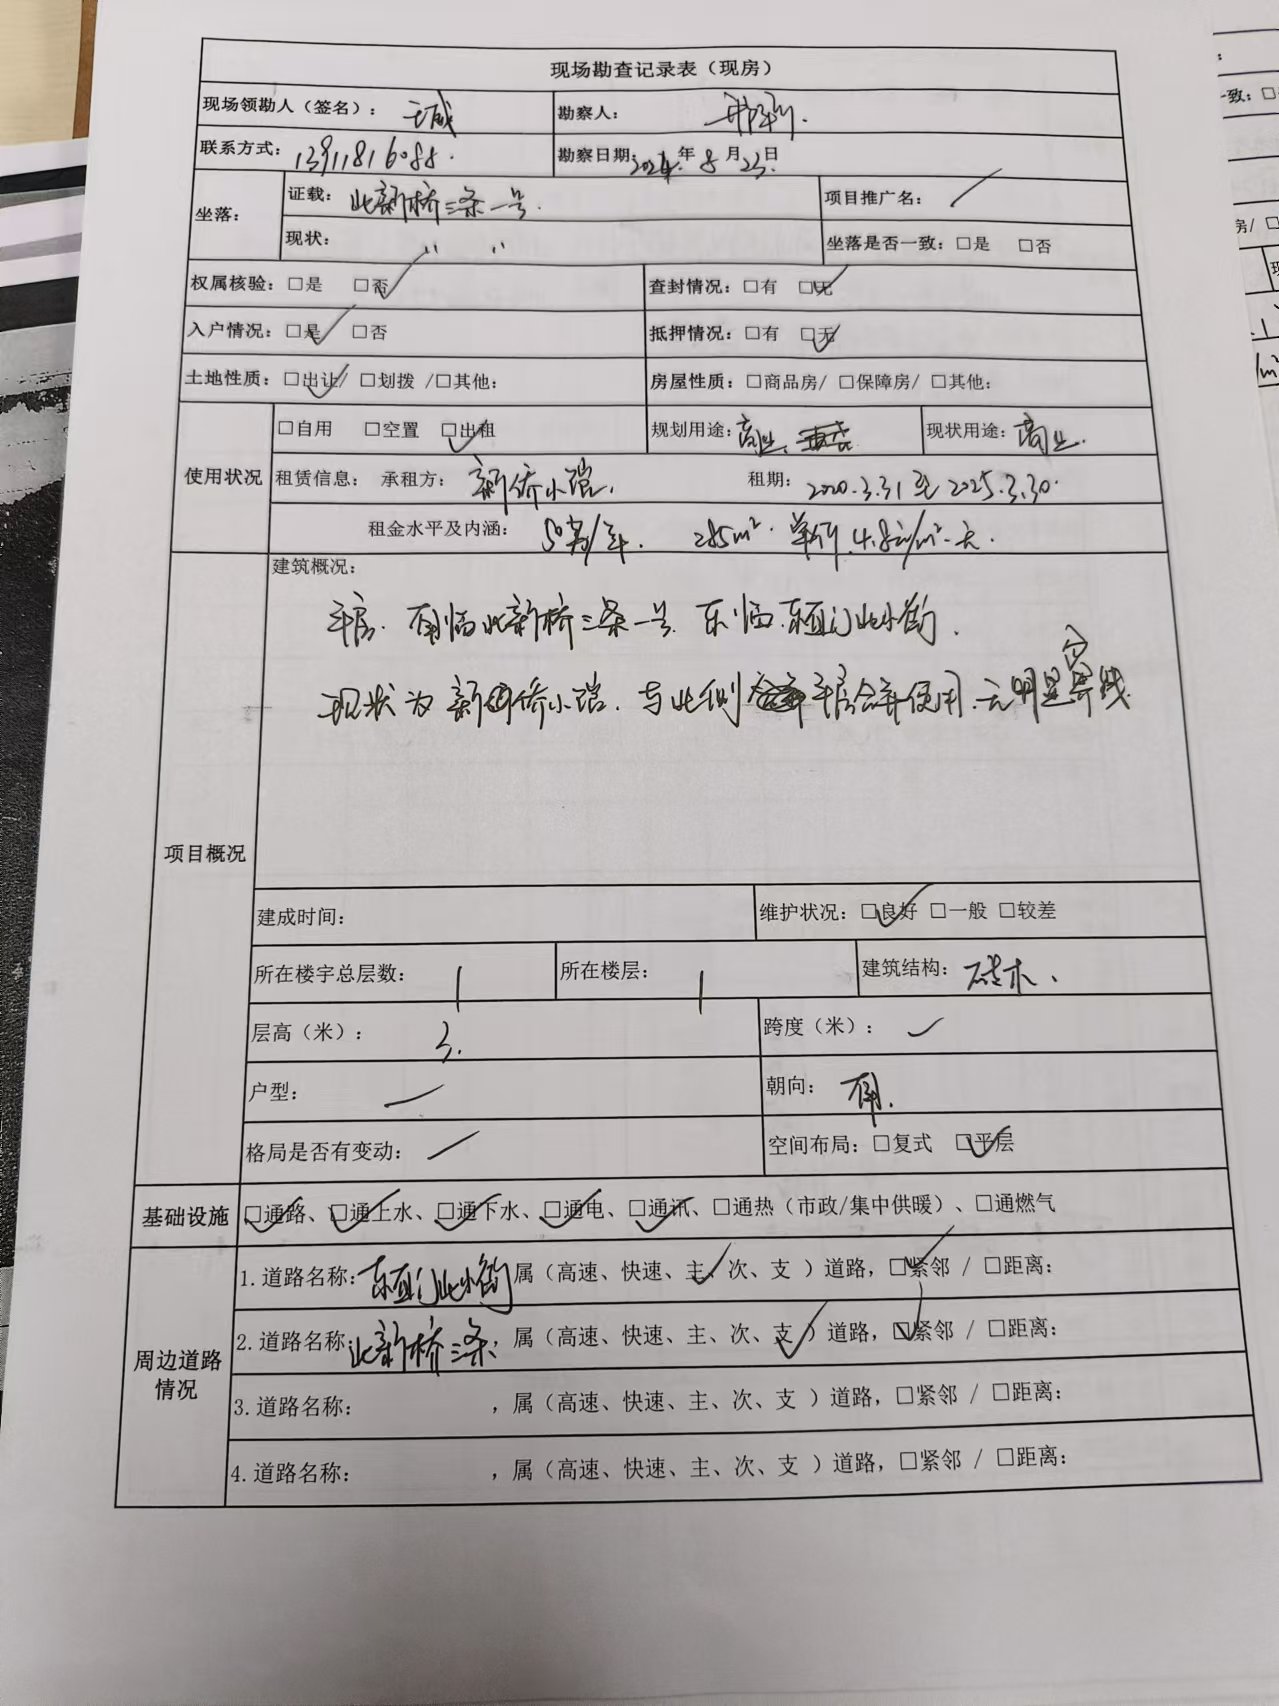 现场勘查记录表（现房）
现场领勘人（签名）： 王成 勘察人：
联系方式：13911816088. 勘察日期：2024年8月23日
坐落： 证载： 北新桥三条一号. 项目推广名： ／
现状： 〃 〃 坐落是否一致：□是 □否
权属核验：□是 □否 查封情况：□有 □无
入户情况：□是 □否 抵押情况：□有 □无
土地性质：□出让/ □划拨 /□其他： 房屋性质：□商品房/ □保障房/ □其他：
使用状况 □自用 □空置 □出租 规划用途：商业、 现状用途：商业.
租赁信息： 承租方： 新侨小馆. 租期： 2020.3.31至2025.3.30.
租金水平及内涵： 50万/年. 285m². 单价4.8元/m².天.
项目概况 建筑概况：
平房. 南临北新桥三条一号. 东临东直门北小街.
现状为新侨小馆. 与北侧平房合并使用.无明显界线.
建成时间： 维护状况：□良好 □一般 □较差
所在楼宇总层数： 1 所在楼层： 1 建筑结构： 砖木、
层高（米）： 3. 跨度（米）：
户型： 一 朝向： 南.
格局是否有变动： ／ 空间布局：□复式 □平层
基础设施 □通路、□通上水、□通下水、□通电、□通讯、□通热（市政/集中供暖）、□通燃气
周边道路情况 1.道路名称：东直门北小街 属（高速、快速、主、次、支 ）道路，□紧邻 / □距离：
2.道路名称：北新桥三条，属（高速、快速、主、次、支 ）道路，□紧邻 / □距离：
3.道路名称： ，属（高速、快速、主、次、支 ）道路，□紧邻 / □距离：
4.道路名称： ，属（高速、快速、主、次、支 ）道路，□紧邻 / □距离：